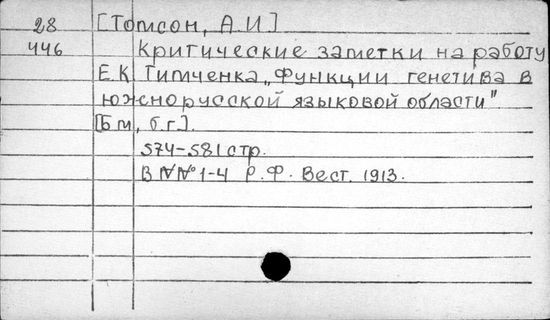 28 [Томсон, А.И]
446 Критические заметки на работу
Е.К Тимченка „Функции генетива в
южнорусской языковой области"
[Б м, б.г.].
574-581 стр.
В №№ 1-4 Р.Ф. Вест. 1913.